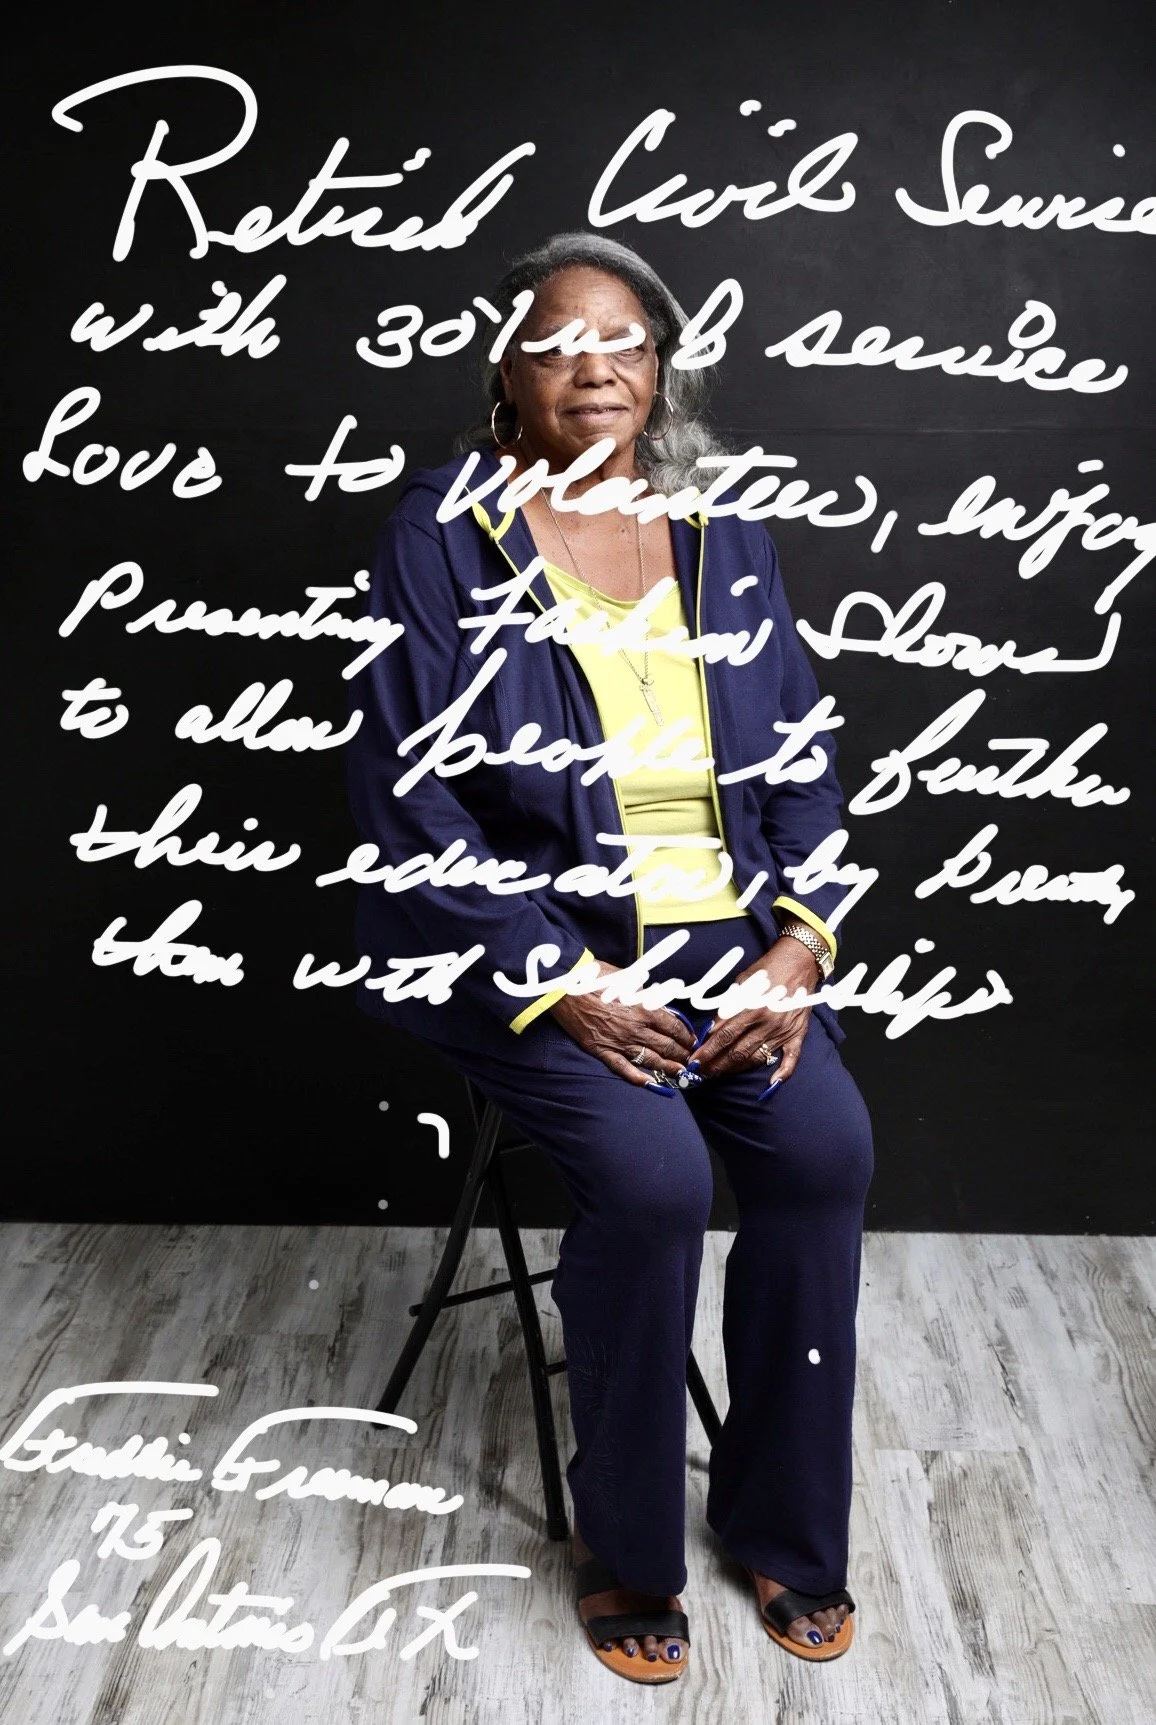 Retired Civil Service
with 30 yrs of service
Love to volunteer, enjoy
Presenting Fashion Shows
to allow people to further
their education, by
them with Scholarships
Freddie Freeman
75
San Antonio TX